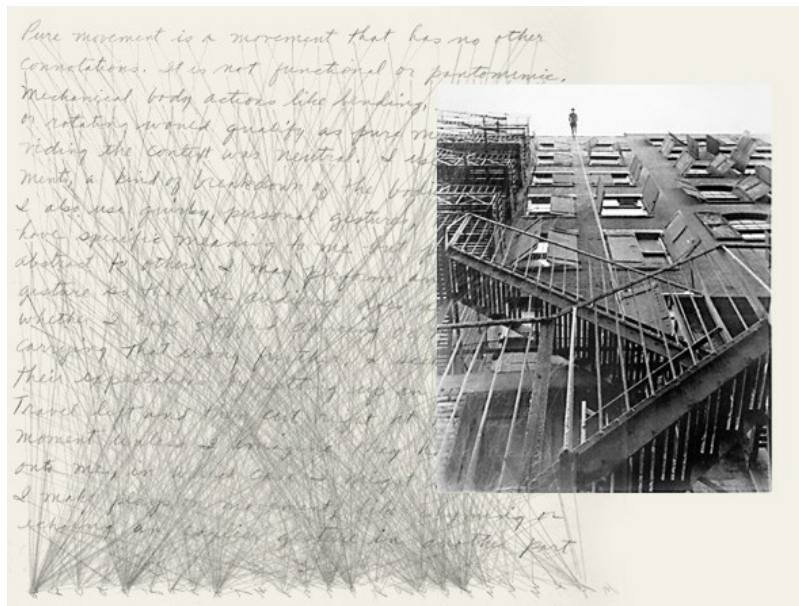 Pure movement is a movement that has no other
connotations. It is not functional or pantomimic.
Mechanical body actions like bending,
or rotating would qualify as pure m
viding the context was neutral. I use
ments, a kind of breakdown of the body
I also use quirky, personal gestures,
have specific meaning to me but
abstract to others. I may perform an
gesture so that the audience does
whether I have
carrying that
their expectations by
Travel left and then cut right at
moment unless I imagine they h
onto me, in which case I might
I make plays on movement, like rhyming or
echoing an earlier gesture in another part